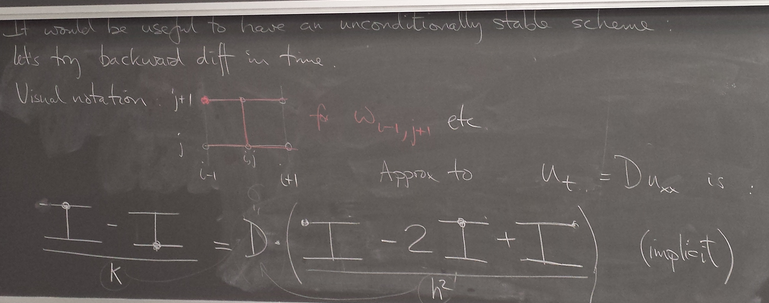 It would be useful to have an unconditionally stable scheme:
let's try backward diff in time.
Visual notation j+1
for w_{i-1,j+1} etc.
j i,j
i-1 i+1
Approx to u_t = D u_xx is:
- = D · ( - 2 + ) (implicit)
k h²